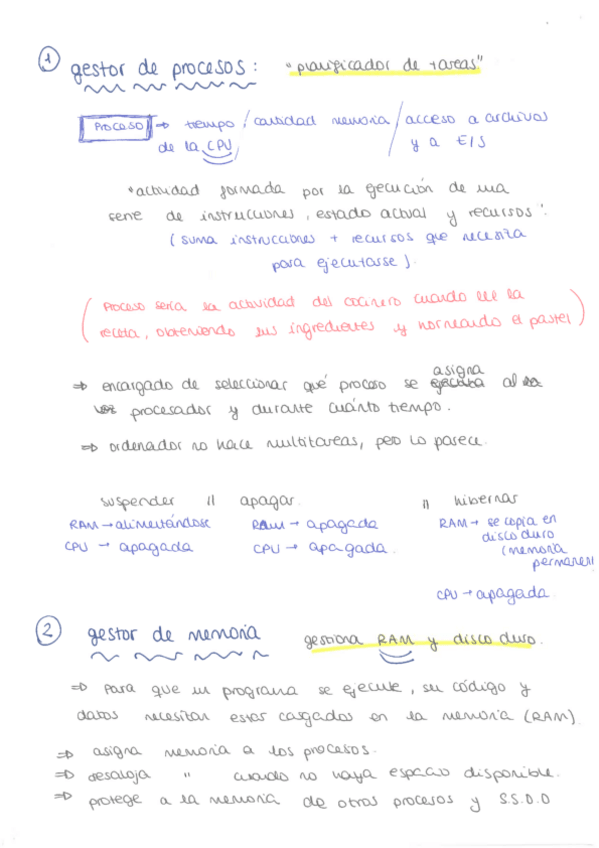 1 gestor de procesos: "planificador de tareas"
PROCESO ⇒ tiempo / cantidad memoria / acceso a archivos
de la CPU y a E/S
"actividad formada por la ejecución de una
serie de instrucciones, estado actual y recursos".
(suma instrucciones + recursos que necesita
para ejecutarse).
(Proceso sería la actividad del cocinero cuando lee la
receta, obteniendo sus ingredientes y horneando el pastel)
asigna
⇒ encargado de seleccionar qué proceso se ejecuta al
vez procesador y durante cuánto tiempo.
⇒ ordenador no hace multitareas, pero lo parece.
suspender || apagar || hibernar
RAM → alimentándose RAM → apagada RAM → se copia en
disco duro
CPU → apagada CPU → apagada (memoria
permanen
CPU → apagada
2 gestor de memoria gestiona RAM y disco duro.
⇒ Para que un programa se ejecute, su código y
datos necesitan estar cargados en la memoria (RAM).
⇒ asigna memoria a los procesos.
⇒ desaloja " cuando no haya espacio disponible.
⇒ protege a la memoria de otros procesos y SS.O.O